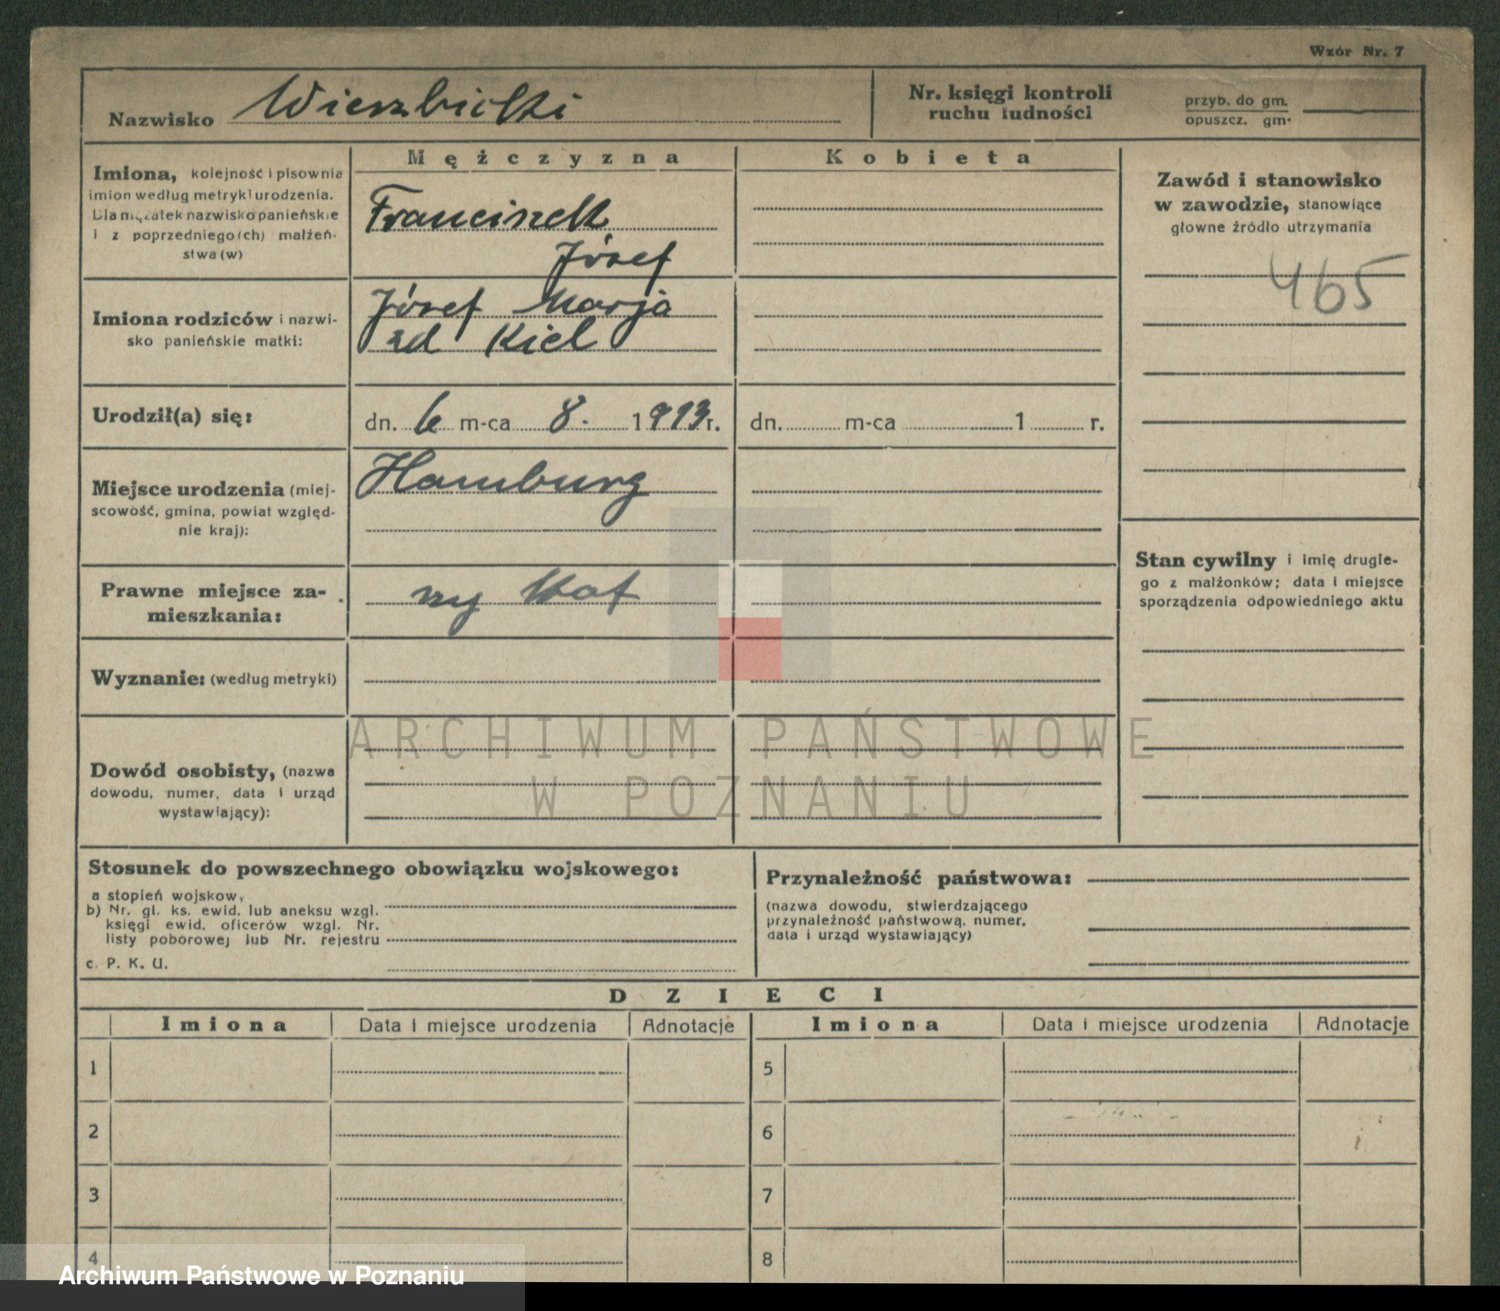 Wzór Nr. 7
Nazwisko Wierzbicki
Nr. księgi kontroli
ruchu ludności
przyb. do gm.
opuszcz. gm.
Mężczyzna
Kobieta
Imiona, kolejność i pisownia
imion według metryki urodzenia.
Dla mężatek nazwisko panieńskie
i z poprzedniego(ch) małżeń-
stwa(w)
Franciszek
Józef
Zawód i stanowisko
w zawodzie, stanowiące
głowne źródło utrzymania
465
Imiona rodziców i nazwi-
sko panieńskie matki:
Józef Marja
zd Kiel
Urodził(a) się:
dn. 6 m-ca 8. 1913 r.
dn. m-ca 1 r.
Miejsce urodzenia (miej-
scowość, gmina, powiat względ-
nie kraj):
Hamburg
Stan cywilny i imię drugie-
go z małżonków; data i miejsce
sporządzenia odpowiedniego aktu
Prawne miejsce za-
mieszkania:
Wyznanie: (według metryki)
Dowód osobisty, (nazwa
dowodu, numer, data i urząd
wystawiający):
ARCHIWUM PAŃSTWOWE
W POZNANIU
Stosunek do powszechnego obowiązku wojskowego:
a stopień wojskow,
b) Nr. gl. ks. ewid. lub aneksu wzgl.
księgi ewid. oficerów wzgl. Nr.
listy poborowej lub Nr. rejestru
c. P. K. U.
Przynależność państwowa:
(nazwa dowodu, stwierdzającego
przynależność państwową, numer,
data i urząd wystawiający)
DZIECI
Imiona Data i miejsce urodzenia Adnotacje Imiona Data i miejsce urodzenia Adnotacje
1 5
2 6
3 7
4 8
Archiwum Państwowe w Poznaniu